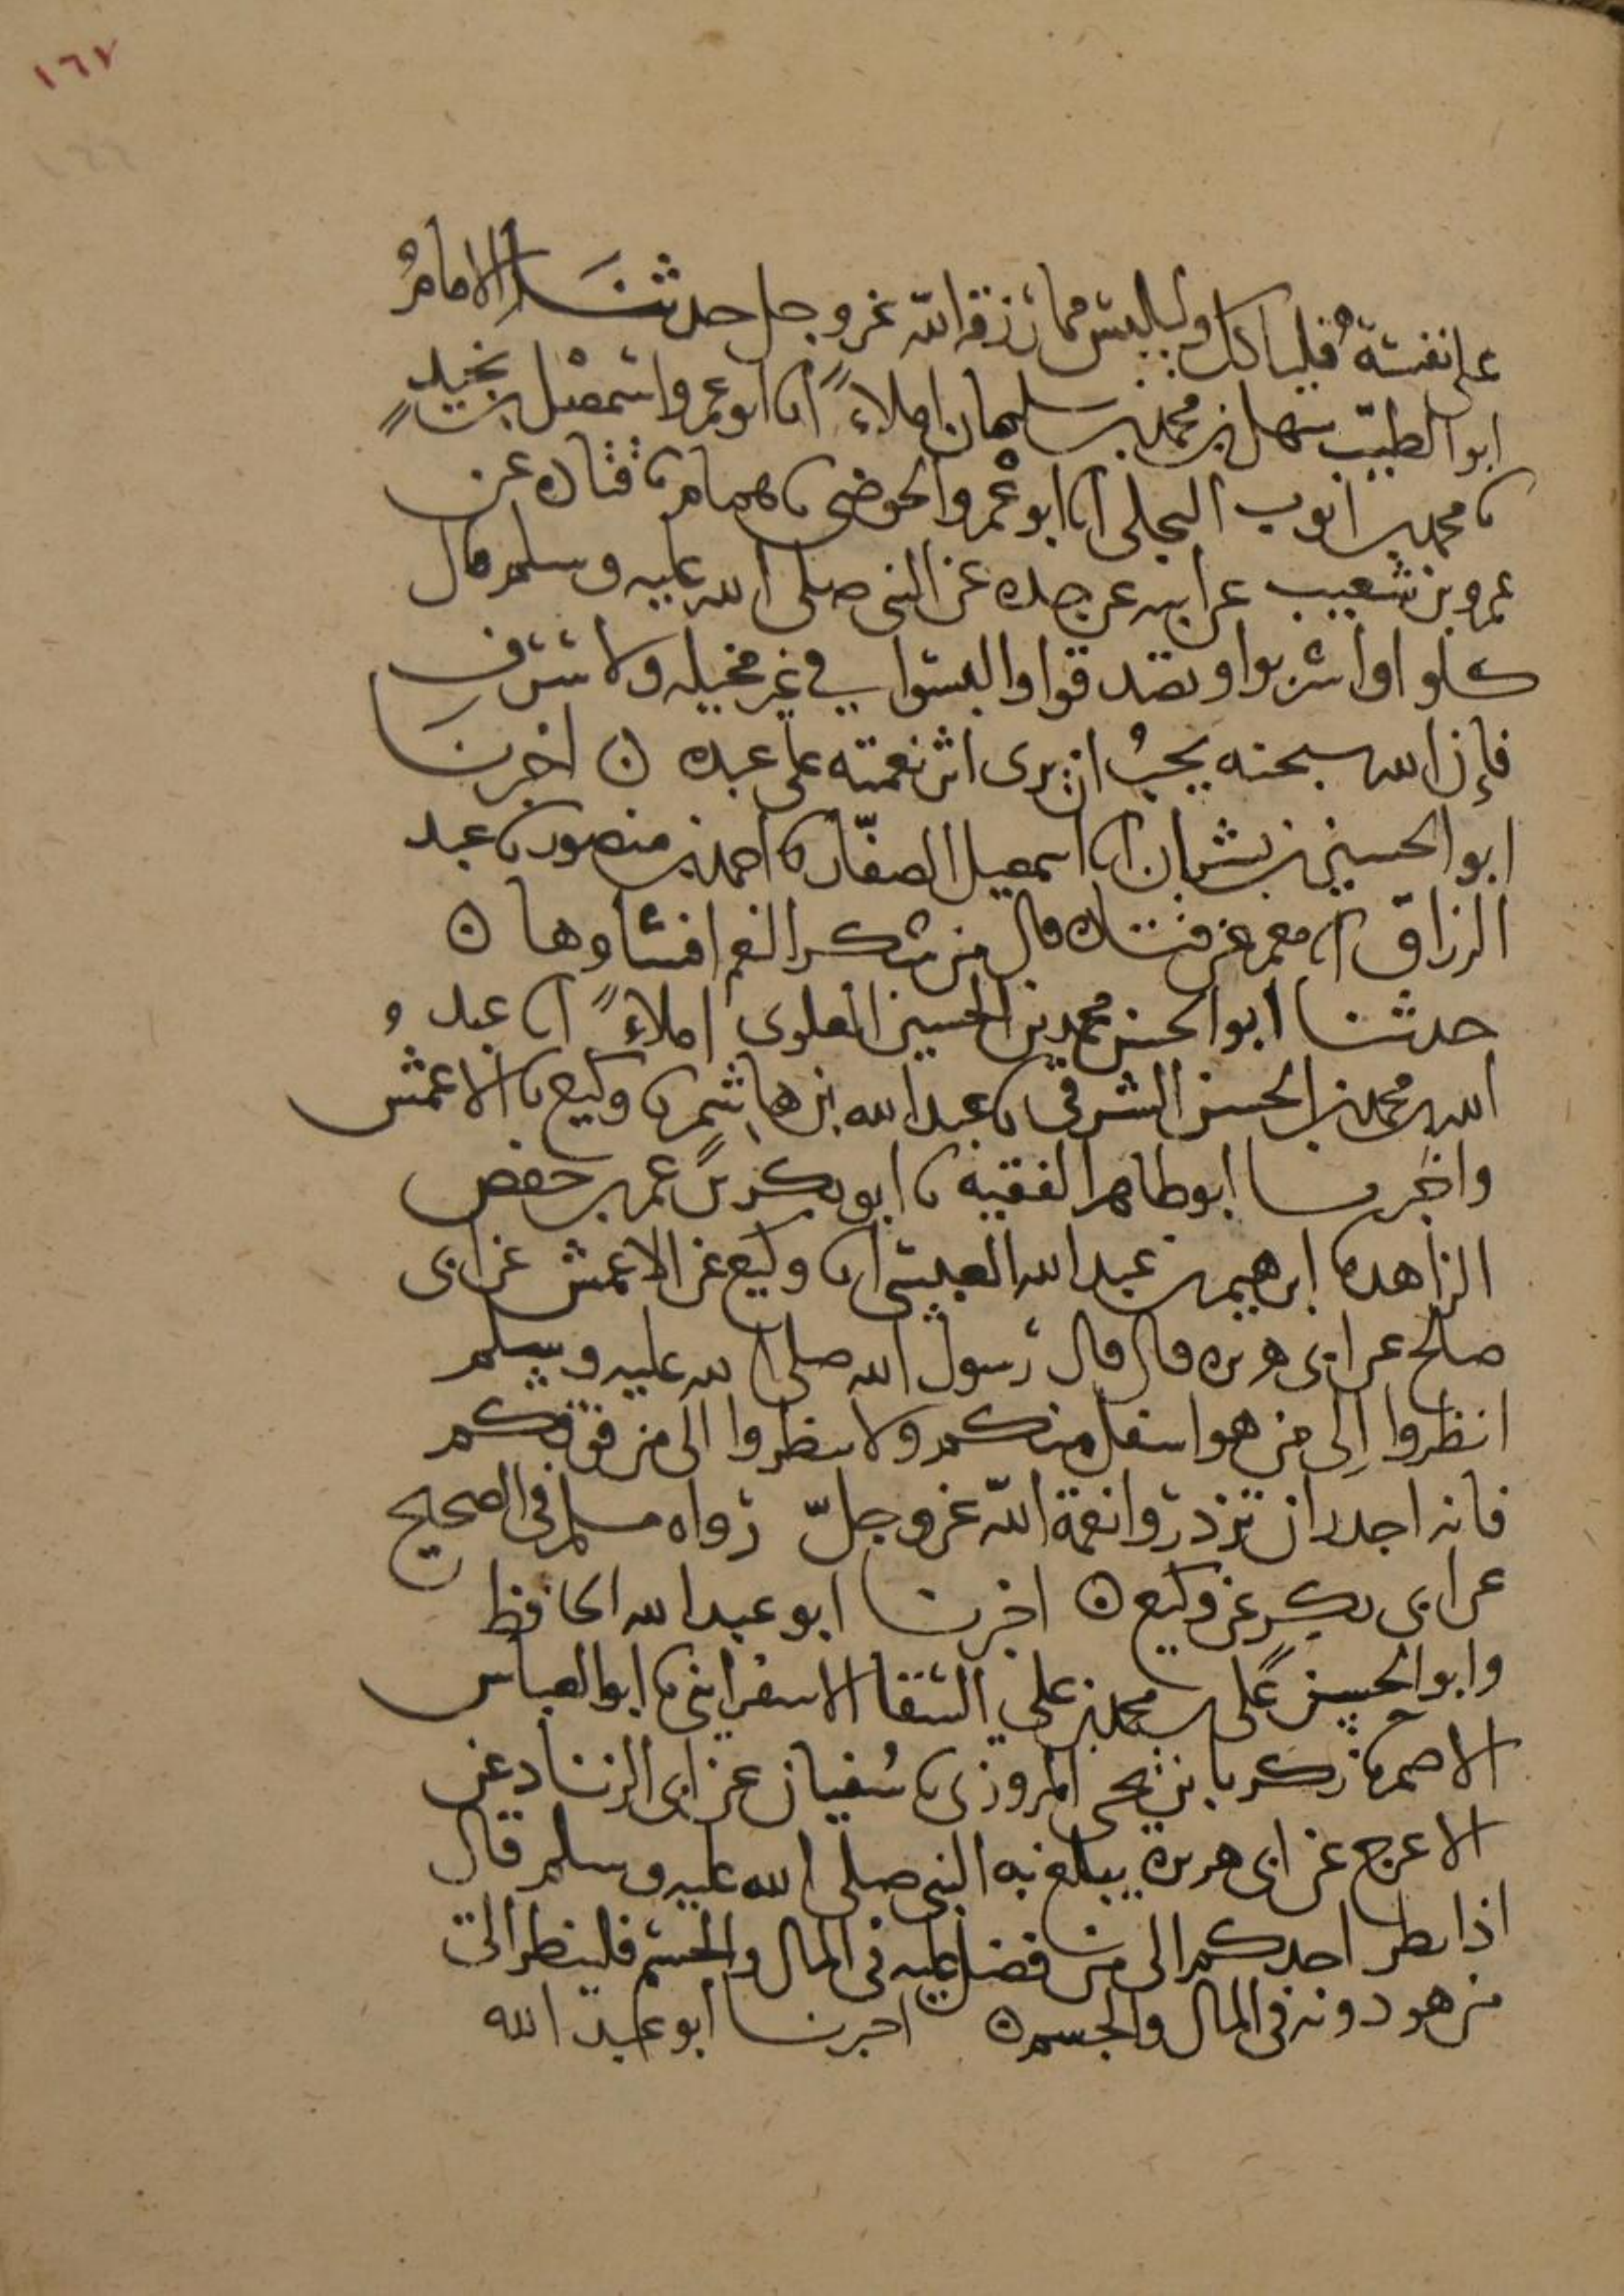 ١٦٧
على نفسه فلياكل وليلبس مما رزقه الله عز وجل حدثنا الامامُ
ابو الطيّب سهل بن محمد بن سليمان املاءً انا ابو عمرو اسمعيل بن نجيدٍ
نا محمد بن ايوب البجلي انا ابو عُمر والحوضي نا همام نا قتاده عن
عمرو بن شعيب عن ابيه عن جده عن النبي صلى الله عليه وسلم قال
كلوا واشربوا وتصدقوا والبسوا في غير مخيله ولا سرف
فإن الله سبحنه يحبُ ان يرى اثر نعمته على عبده ن اخبرنا
ابو الحسين بن بشران انا اسمعيل الصفّار نا احمد بن منصور نا عبد
الرزاق انا معمر عن قتاده قال من شكر النعم افشاوها ن
حدثنا ابو الحسن محمد بن الحسين العلوى املاءً انا عبد
الله بن محمد بن الحسن الشرقي نا عبد الله بن هاشم نا وكيع نا الاعمش
واخبرنا ابو طاهر الفقيه نا ابو بكر بن عمر بن حفص
الزاهد نا ابرهيم بن عبد الله العبسي انا وكيع عن الاعمش عن ابى
صالح عن ابى هريره قال قال رسول الله صلى الله عليه وسلم
انظروا إلى من هو اسفل منكم ولا تنظروا الى من فوقكم
فانه اجدر ان تزدروا نعمة الله عز وجلّ رواه مسلم في الصحيح
عن ابى بكر عن وكيع ن اخبرنا ابو عبد الله الحافظ
وابو الحسين على بن محمد بن علي السقا الاسفرايني نا ابو العباس
الاصم نا زكريا بن يحيى المروزي نا سُفيان عن ابى الزناد عن
الاعرج عن ابى هريرة يبلغ به النبي صلى الله عليه وسلم قال
اذا نظر احدكم الى من فضل عليه في المال والجسم فلينظر الى
من هو دونه في المال والجسم ن اخبرنا ابو عبد الله